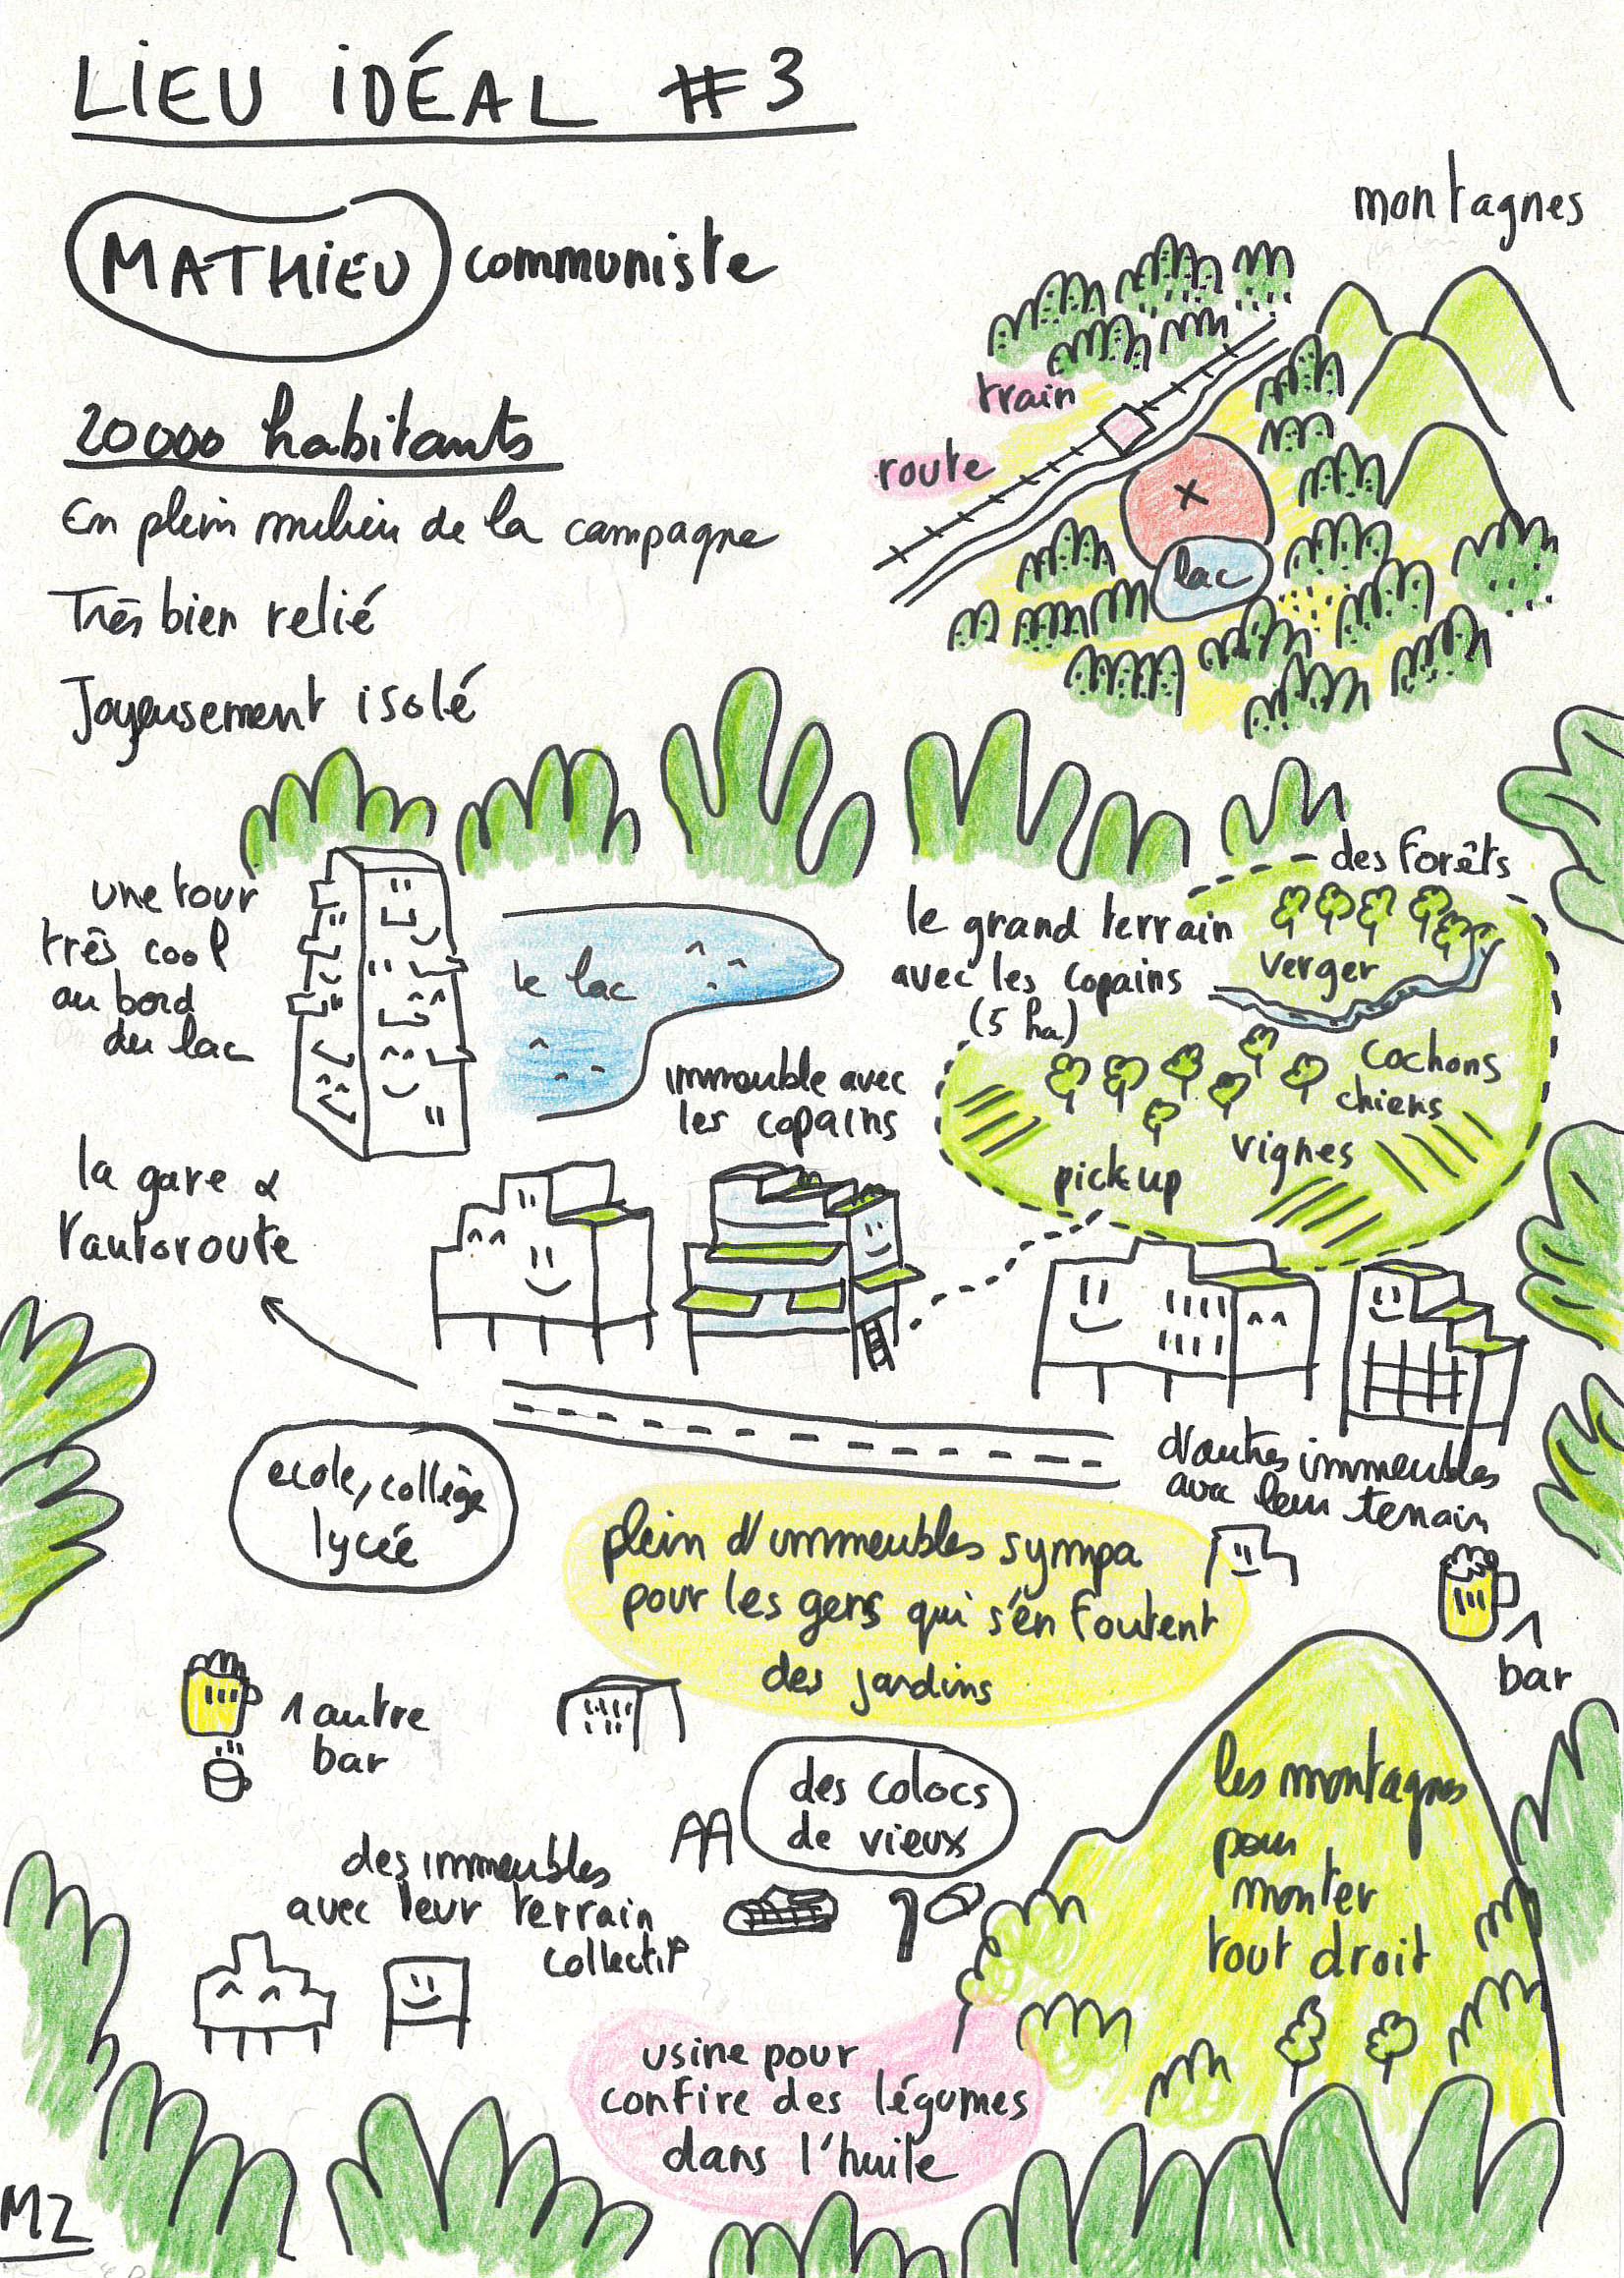 LIEU IDÉAL #3
MATHIEU communiste
20000 habitants
En plein milieu de la campagne
Très bien relié
Joyeusement isolé
montagnes
train
route
lac
une tour
très cool
au bord
du lac
le lac
des forêts
le grand terrain
avec les copains
(5 ha)
verger
cochons
chiens
vignes
pick up
immeuble avec
les copains
la gare &
l'autoroute
école, collège
lycée
d'autres immeubles
avec leur terrain
plein d'immeubles sympa
pour les gens qui s'en foutent
des jardins
1
bar
1 autre
bar
des colocs
de vieux
des immeubles
avec leur terrain
collectif
les montagnes
pour
monter
tout droit
usine pour
confire des légumes
dans l'huile
MZ